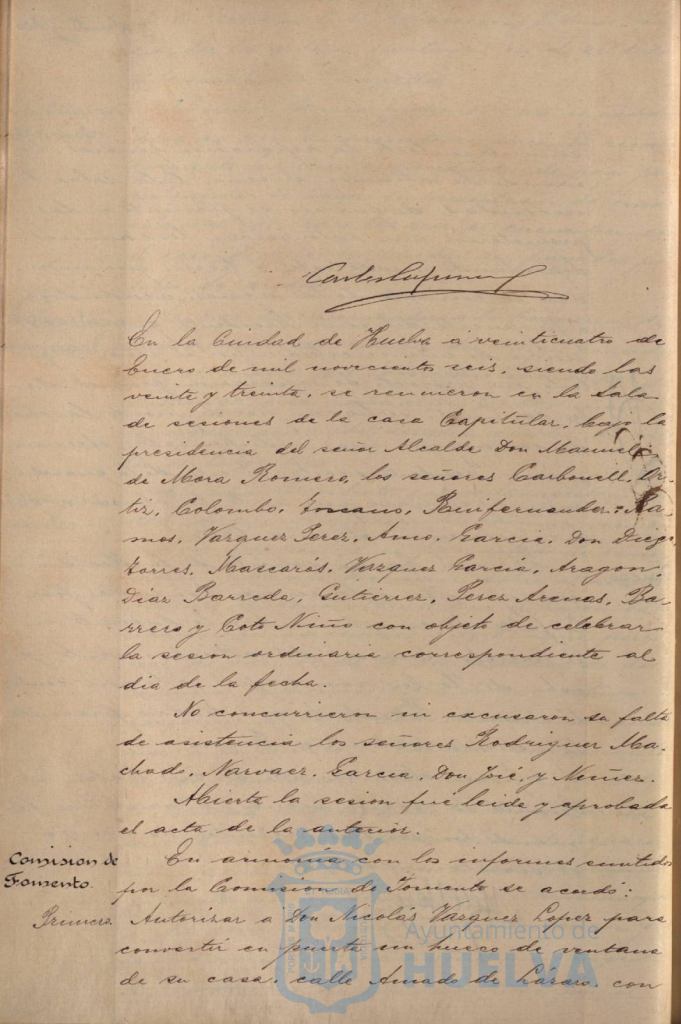 En la Ciudad de Huelva á veinticuatro de
Enero de mil novecientos seis, siendo las
veinte y treinta, se reunieron en la Sala
de sesiones de la casa Capitular, bajo la
presidencia del señor Alcalde Don Manuel
de Mora Romero, los señores Carbonell, Or-
tiz, Colombo, Toscano, Ruifernandez, Ra-
mos, Vazquez Perez, Amo, Garcia, Don Diego,
Torres, Mascarós, Vazquez Garcia, Aragon,
Diaz Barreda, Gutierrez, Perez Arenas, Ba-
rrera y Coto Niño con objeto de celebrar
la sesion ordinaria correspondiente al
dia de la fecha.
No concurrieron ni excusaron su falta
de asistencia los señores Rodriguez Ma-
chado, Narvaez, Garcia, Don José, y Nuñez.
Abierta la sesion fué leida y aprobada
el acta de la anterior.
Comision de
Fomento.
En armonía con los informes emitidos
por la Comision de Fomento se acordó:
Primero. Autorizar á Don Nicolás Vazquez Lopez para
convertir en puerta un hueco de ventana
de su casa, calle Amado de Lázaro, con
Ayuntamiento de
HUELVA